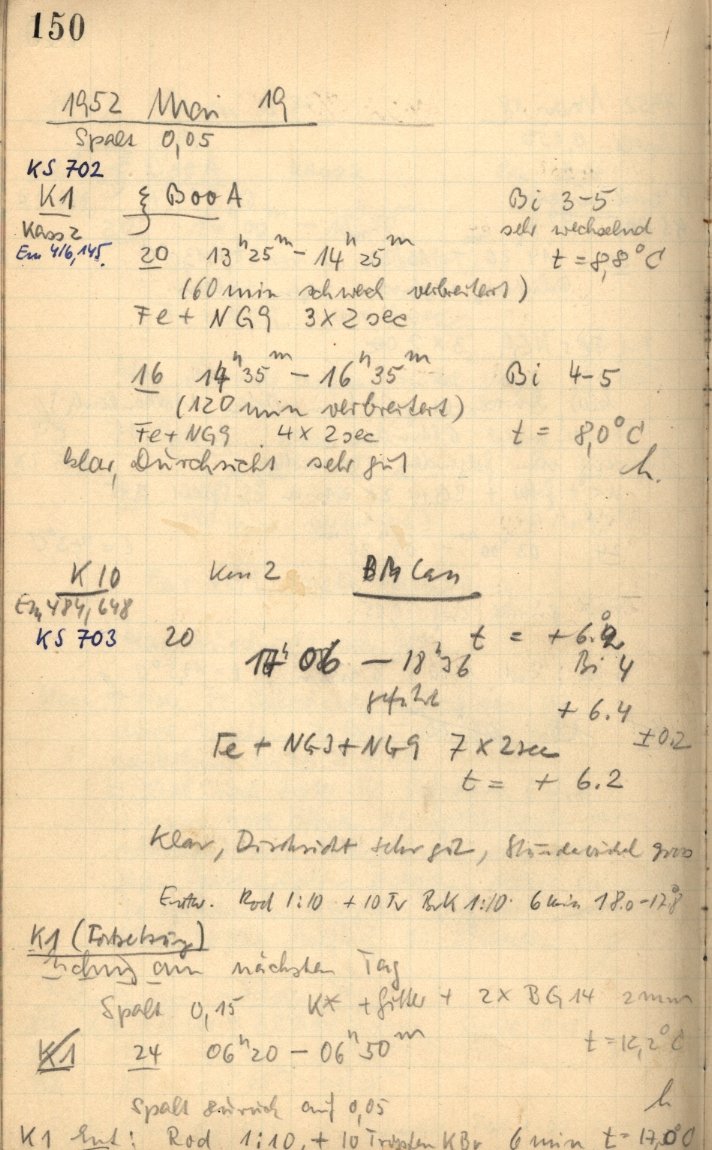 150
1952 Mai 19
Spalt 0,05
KS 702
K1 ξ Boo A Bi 3-5
Kass 2 sehr wechselnd
Em 416, 145. 20 13h25m – 14h25m t = 8,8°C
(60 min schwach verbreitert)
Fe + NG9 3 x 2 sec
16 14h35m – 16h35m Bi 4-5
(120 min verbreitert)
Fe + NG9 4 x 2 sec t = 8,0°C
klar, Durchsicht sehr gut h.
K 10 Kass 2 BM Can
Em 484, 648
KS 703 20 t = +6.2
17h 06 – 18h36 Bi 4
geführt +6.4
Fe + NG3 + NG9 7 x 2 sec ±0.2
t = + 6.2
Klar, Durchsicht sehr gut, Stundenwinkel gross
Entw. Rod 1:10 + 10 Tr BrK 1:10 6 min 18.0-17.8°
K1 (Fortsetzung)
am nächsten Tag
Spalt 0,15 K* + Gitter + 2x BG 14 2mm
K1 24 06h20 – 06h50m t = 12,2°C
Spalt zurück auf 0,05 h
K1 Ent: Rod 1:10, + 10 Tropfen KBr 6 min t = 17,0°C